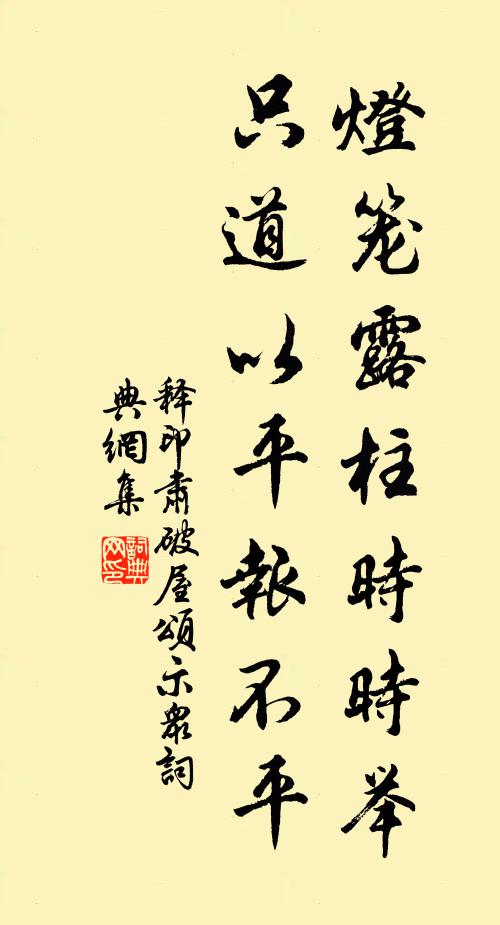 燈笼露柱時時举
只道以平報不平
释印肃破屋頌示衆詞
典網集
詞典
网印